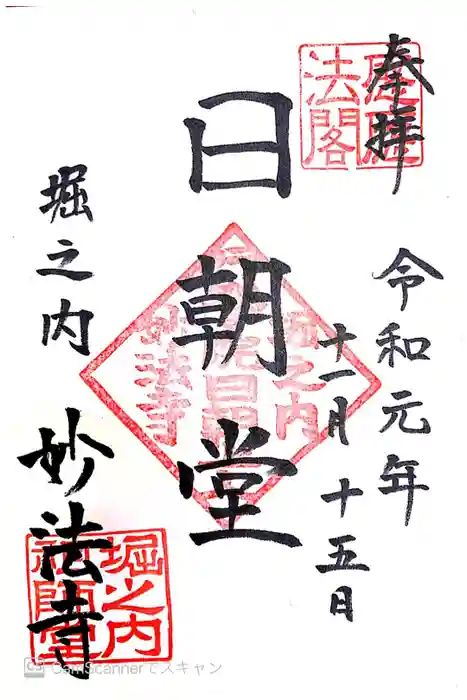 奉拝
令和元年
十一月十五日
日朝堂
堀之内
妙法寺
法閣
堀之内
妙法寺
堀之内
CamScannerでスキャン